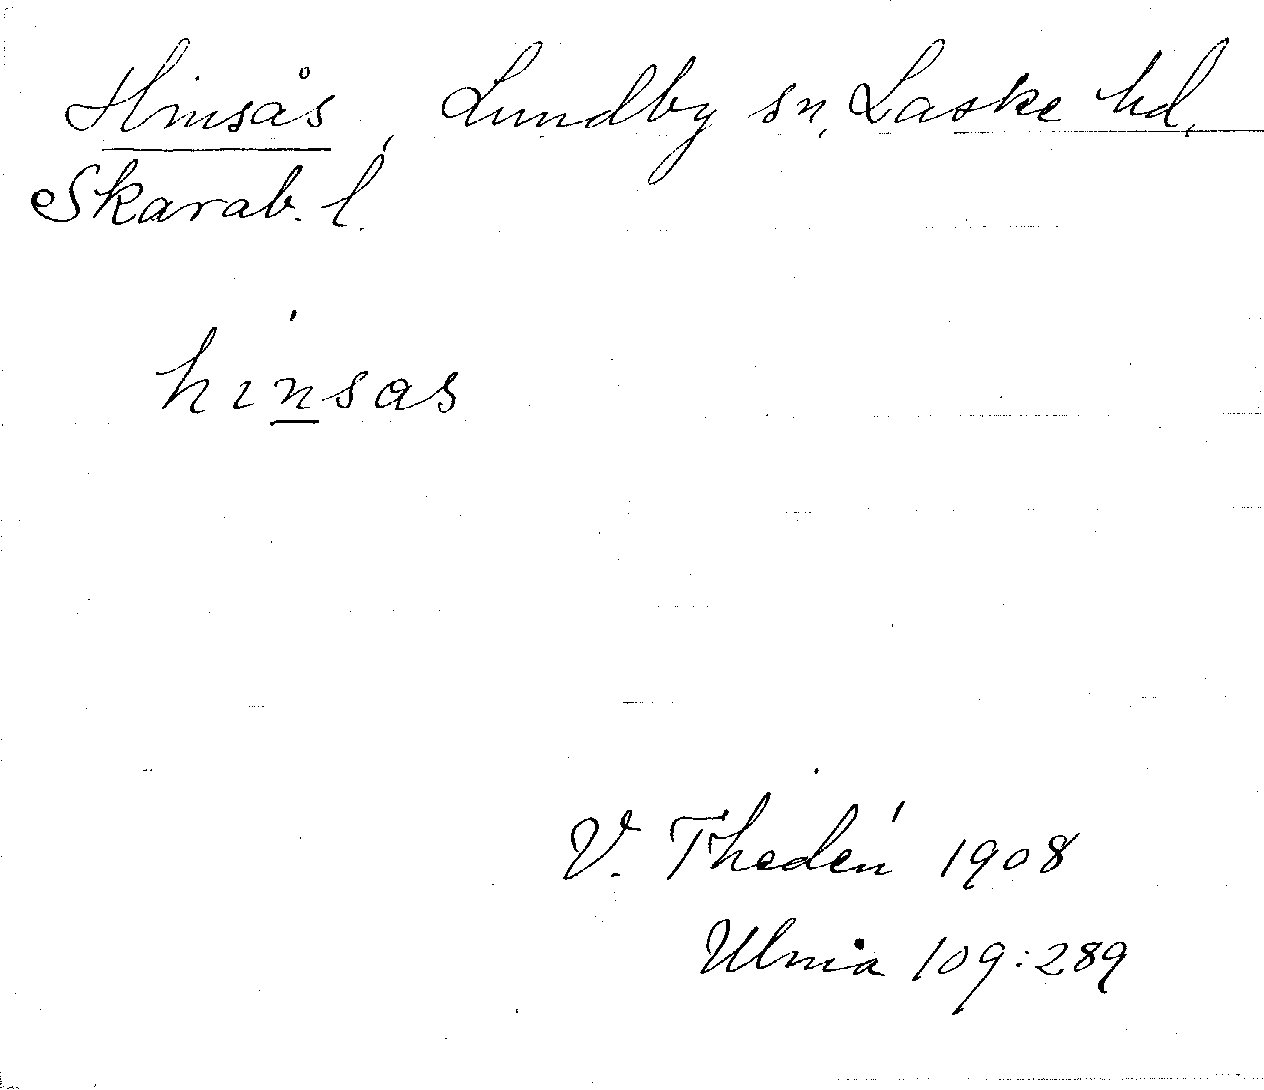 Hinsås, Lundby sn, Laske hd,
Skarab. l.
hinsas
V. Thedén 1908
Ulma 109:289